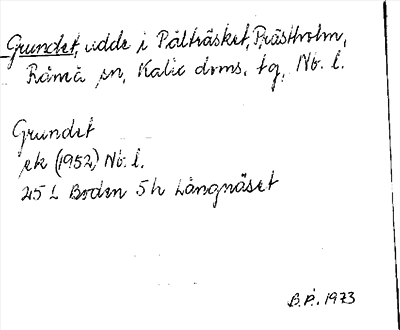 Grundet, udde i Pålträsket, Prästholm,
Råneå sn, Kalix doms. tg, Nb. l.
Grundet
ek (1952) Nb. l.
25 L Boden 5h Långnäset
B.P. 1973